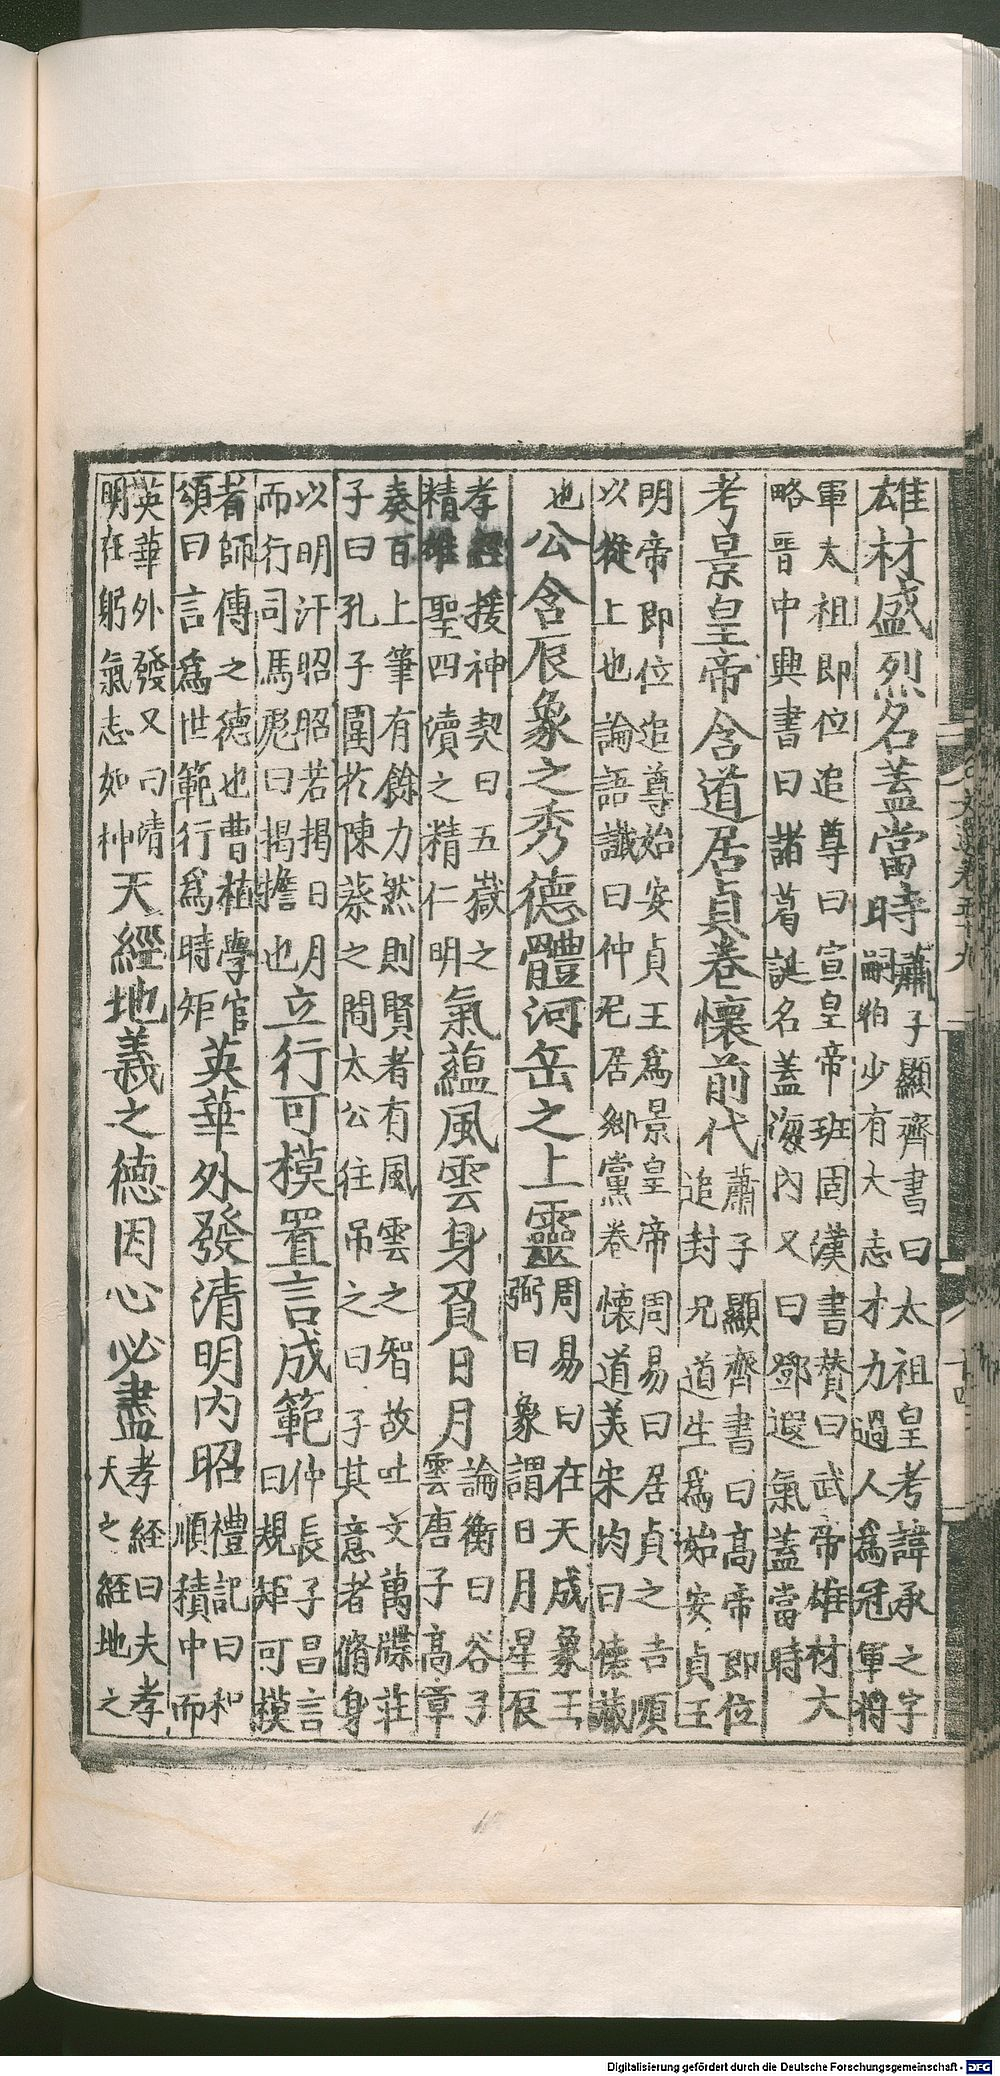 雄材盛烈名蓋當時蕭子顯齊書曰太祖皇考諱承之字嗣伯少有大志才力過人爲冠軍將
軍太祖即位追尊曰宣皇帝班固漢書贊曰武帝雄材大略晉中興書曰諸葛誕名蓋海内又曰鄧遐氣蓋當時
考景皇帝含道居貞卷懷前代蕭子顯齊書曰高帝即位追封兄道生爲始安貞王
明帝即位追尊始安貞王爲景皇帝周易曰居貞之吉順以從上也論語讖曰仲尼居鄉黨卷懷道美宋均曰懷藏
也公含辰象之秀德體河岳之上靈周易曰在天成象王弼曰象謂日月星辰
孝經援神契曰五嶽之精雄聖四瀆之精仁明氣蘊風雲身負日月論衡曰谷子雲唐子高章
奏百上筆有餘力然則賢者有風雲之智故吐文萬牒莊子曰孔子圍於陳蔡之閒太公往吊之曰子其意者脩身
以明汙昭昭若揭日月而行司馬彪曰揭擔也立行可模置言成範仲長子昌言曰規矩可模
者師傅之德也曹植學官頌曰言爲世範行爲時矩英華外發清明内昭禮記曰和順積中而
英華外發又曰清明在躬氣志如神天經地義之德因心必盡孝經曰夫孝天之經地之
文選卷五十九
十四
Digitalisierung gefördert durch die Deutsche Forschungsgemeinschaft - DFG